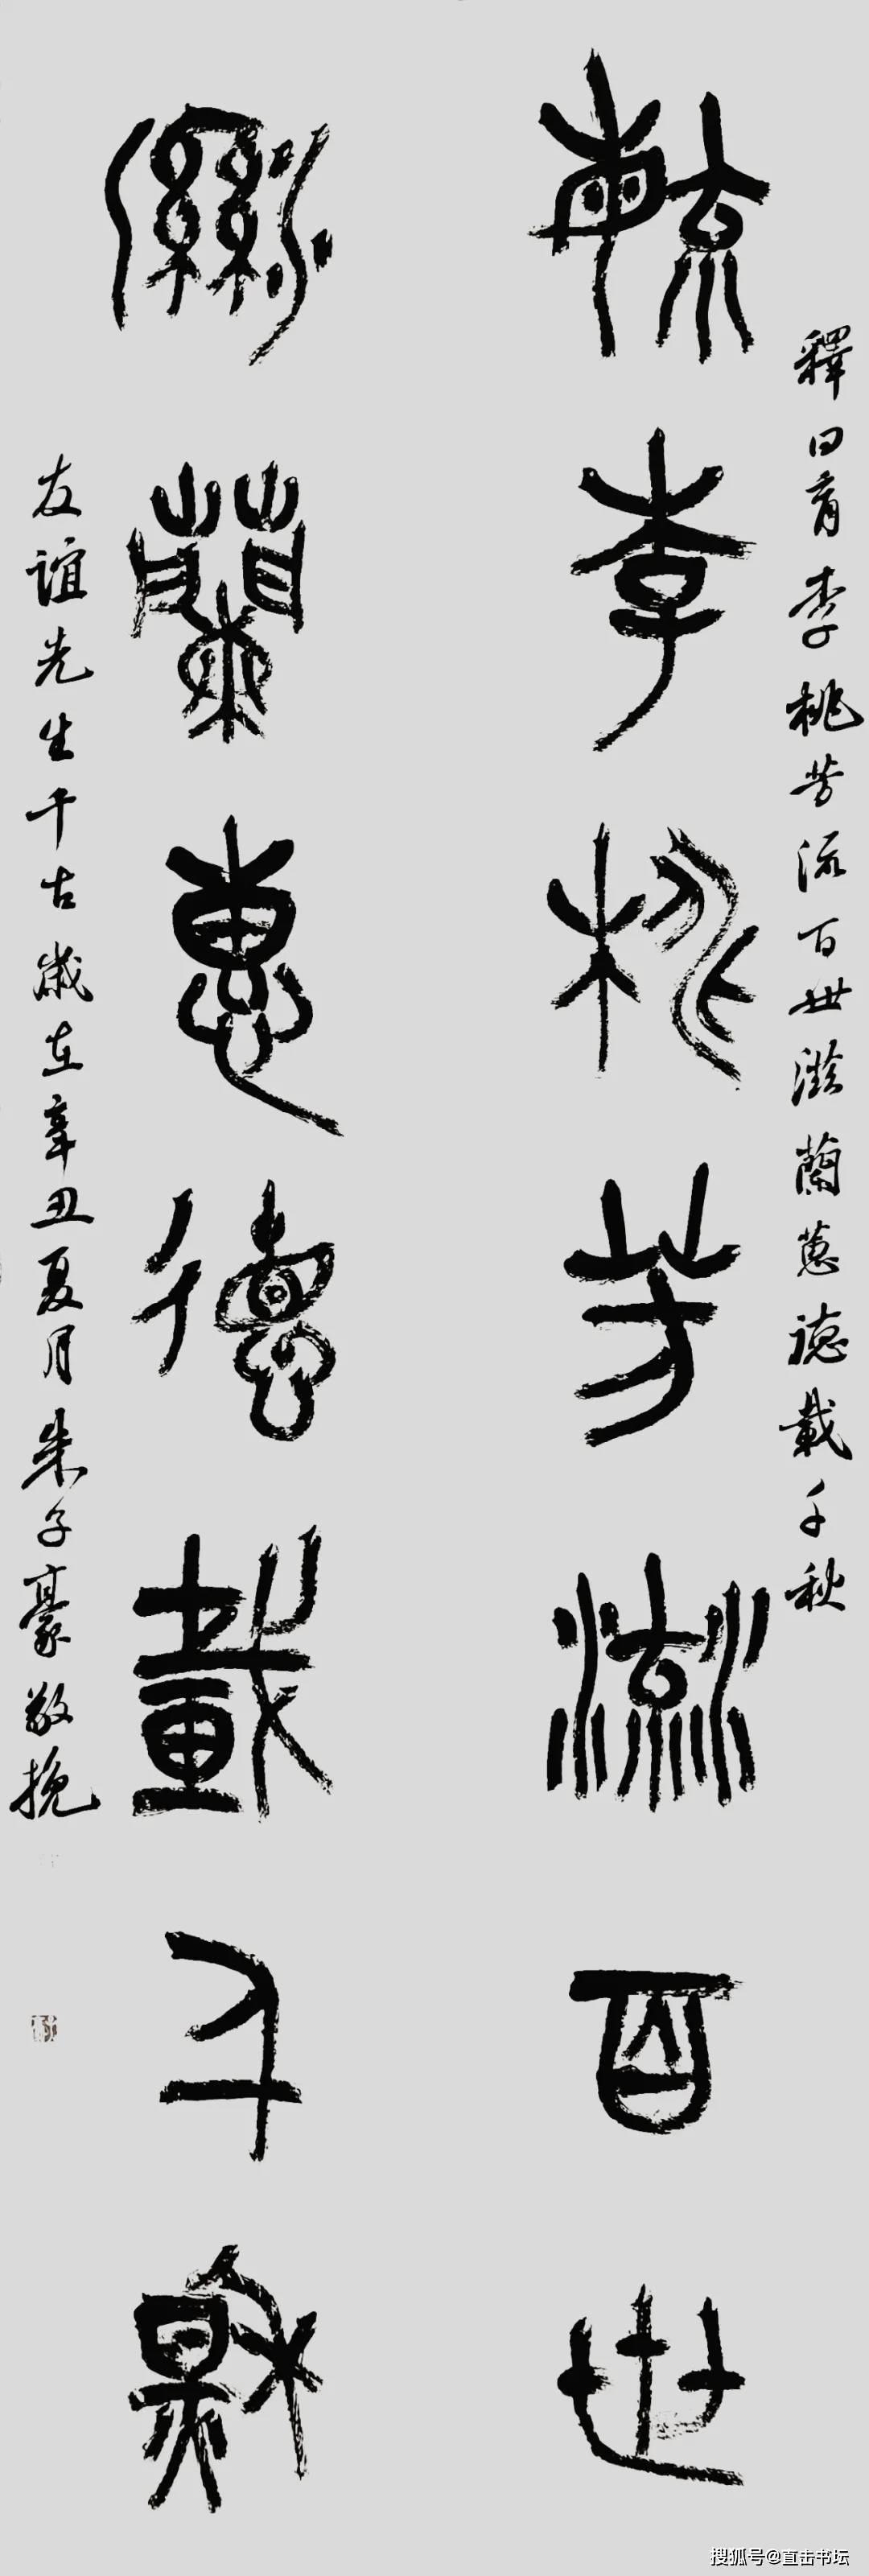 釋曰育李桃芳流百世滋蘭蕙德載千秋
毓李桃芳流百世
滋蘭蕙德載千秋
友誼先生千古歲在辛丑夏月朱子豪敬挽
搜狐号@直击书坛